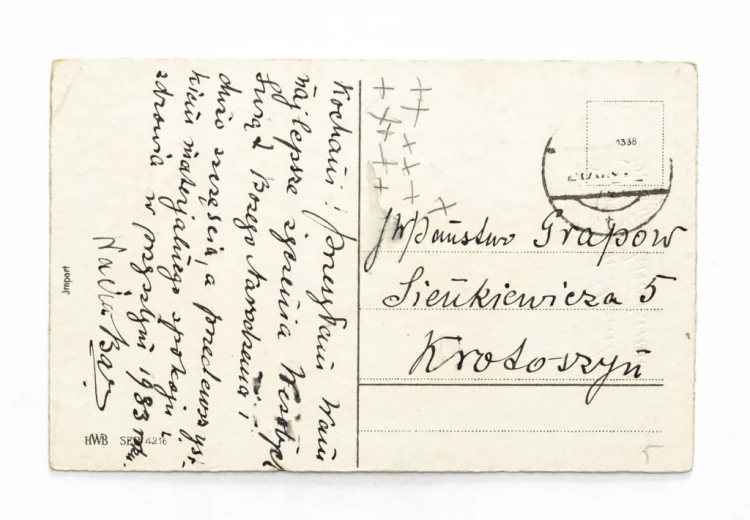 Kochani! Przesyłam Wam
najlepsze życzenia Wesołych
Świąt Bożego Narodzenia i
dużo szczęścia, a przedewszyst-
kiem materjalnego spokoju i
zdrowia w przyszłym 1933 roku.
Jmport
HWB SER 4216
1338
JWPaństwo Grapow
Sieńkiewicza 5
Krotoszyń
5